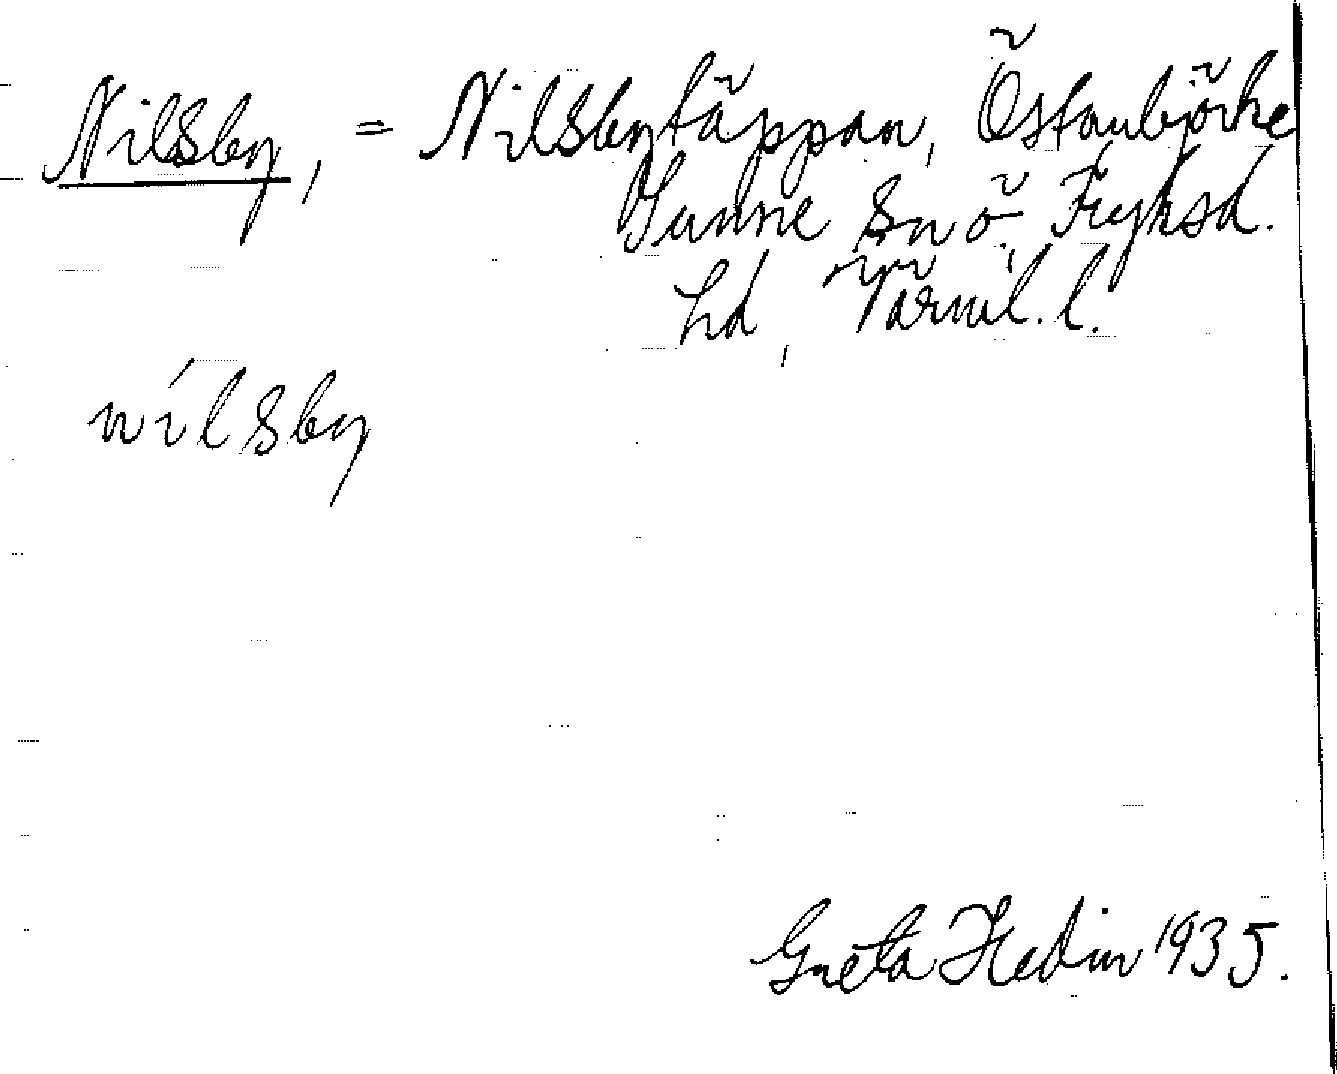 Nilsby, = Nilsbytäppan, Östanbjörke
Sunne sn ö. Fryksd.
hd, Värml. l.
nílsby
Greta Hedin 1935.